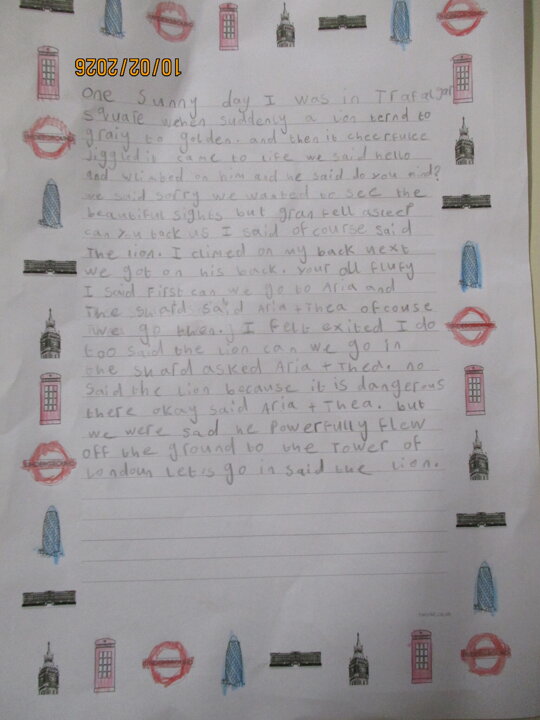 10/02/2026
One sunny day I was in Trafalgar
square wehen suddenly a lion ternd to
graiy to golden. and then it cheerfulce
Jiggled it came to life we said hello
and wlimbed on him and he said do you mind?
we said sorry we wanted to see the
beautiful sights but gran fell asleep
can you tack us I said of course said
the lion. I climed on my back next
we got on his back. your all flufy
I said First can we go to Aria and
The shard said Aria + Thea ofcouse
we go then. I felt exited I do
too said the lion can we go in
the shard asked Aria + Thea. no
said the lion because it is dangerous
there okay said Aria + Thea. but
we were sad he Powerfully flew
off the ground to the Tower of
Londoun Let's go in said the lion.
UNDERGROUND
twinkl.co.uk